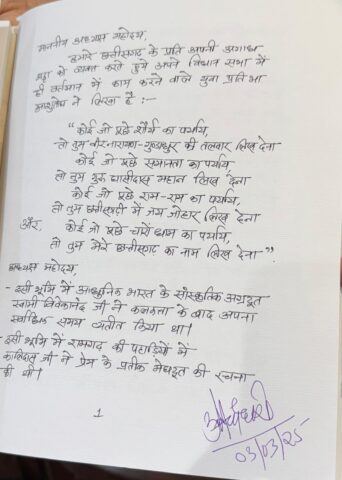 माननीय अध्यक्ष महोदय,
हमारे छत्तीसगढ़ के प्रति अपनी अगाध
श्रद्धा को व्यक्त करते हुये अपने विधान सभा में
ही वर्तमान में काम करने वाले युवा प्रतिभा
आशुतोष ने लिखा है :-
"कोई जो पूछे शौर्य का पर्याय,
तो तुम वीरनारायण-गुण्डाधुर की तलवार लिख देना
कोई जो पूछे समानता का पर्याय,
तो तुम गुरु घासीदास महान लिख देना
कोई जो पूछे राम-राम का पर्याय,
तो तुम छत्तीसगढ़ी में जय जोहार लिख देना
और, कोई जो पूछे चारों धाम का पर्याय,
तो तुम मेरे छत्तीसगढ़ का नाम लिख देना".
अध्यक्ष महोदय,
- इसी भूमि में आधुनिक भारत के सांस्कृतिक अग्रदूत
स्वामी विवेकानंद जी ने कलकत्ता के बाद अपना
सर्वाधिक समय व्यतीत किया था।
- इसी भूमि में रामगढ़ की पहाड़ियों में
कालिदास जी ने प्रेम के प्रतीक मेघदूत की रचना
की थी।
1
03/03/25